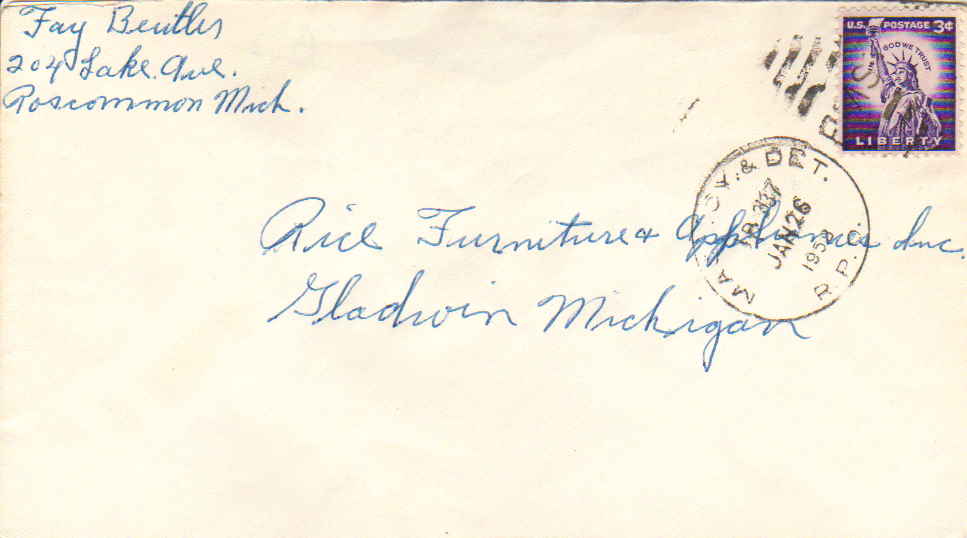 Fay Beutler
204 Lake Ave.
Roscommon Mich.
U.S. POSTAGE 3¢
IN GOD WE TRUST
LIBERTY
RMS
& DET.
JAN 26
R.P.O.
Rice Furniture & Appliances Inc.
Gladwin Michigan